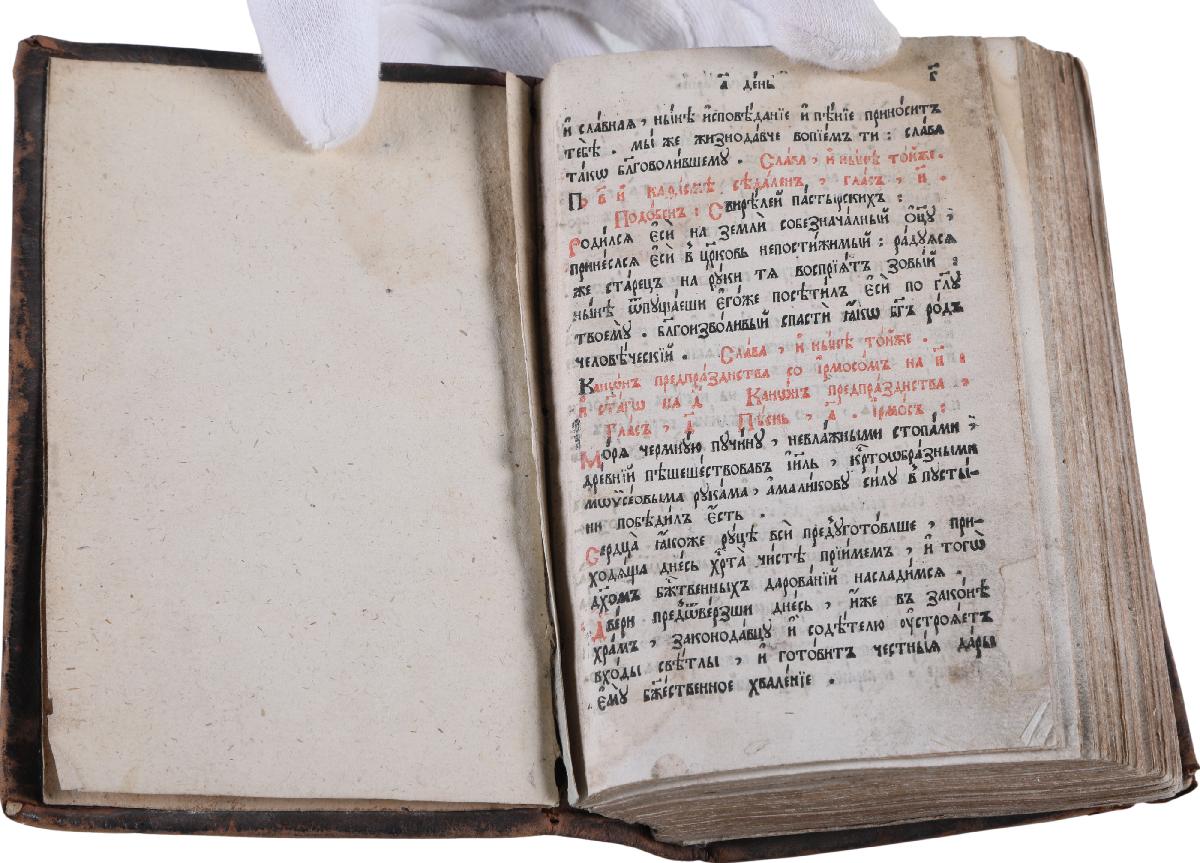 а҃ де́нь г҃
и҆ сла́вная, ны́нѣ и҆сповѣ́данїе и҆ пѣ́нїе прино́ситъ
тебѣ̀. мы́ же жизнода́вче вопїе́мъ ти: сла́вя
та́кѡ бл҃говоли́вшему. Сла́ва, и҆ ны́нѣ то́йже.
По в҃ й каѳі́смѣ сѣда́ленъ, гла́съ, и҃.
Подо́бенъ: Свирѣ́лей па́стырскихъ:
Роди́лся є҆сѝ на землѝ собезнача́лный ѻ҆ц҃у,
прине́слся є҆сѝ в̾ цр҃ковь непостижи́мый: ра́дуяся
же ста́рецъ на ру́ки тя воспрїя́тъ зовы́й:
ны́нѣ ѿпуща́еши є҆го́же посѣти́лъ є҆сѝ по гл҃у
твоему̀. бл҃гоизво́ливый спастѝ ꙗ҆́кѡ бг҃ъ ро́дъ
человѣ́ческїй. Сла́ва, и҆ ны́нѣ то́йже.
Канѡ́нъ предпра́зднства со і҆рмосо́мъ на и҃:
и҆ ст҃а́гѡ на д҃. Канѡ́нъ предпра́зднства,
Гла́съ, д҃. Пѣ́снь, а҃. і҆рмо́съ:
Мо́ря чермну́ю пучи́ну, невла́жными стопа́ми,
дре́внїй пѣшеше́ствовавъ і҆и҃ль, кр҃тоѡбра́зныма
мѡѷсе́овыма рука́ма, а҆мали́кову си́лу в̾ пусты́-
ни побѣди́лъ є҆́сть.
Сердца̀ ꙗ҆́коже ру́цѣ всѝ предъугото́вльше, при-
ходя́ща дне́сь хр҃та̀ чи́стѣ прїи́мемъ, и҆ тогѡ̀
дх҃о́мъ бж҃твенныхъ дарова́нїй наслади́мся.
Две́ри предъѿве́рзши дне́сь, и҆́же въ зако́нѣ
хра́мъ, законода́вцу и҆ содѣ́телю оу҆строя́етъ
вхо́ды свѣ́тлы, и҆ гото́витъ честны́я да́ры
є҆му̀ бж҃е́ственное хвале́нїе.